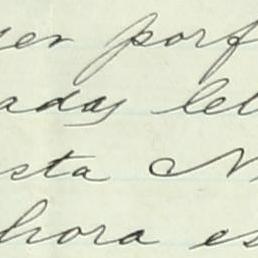 ser porf
adas let
sta N
hora es